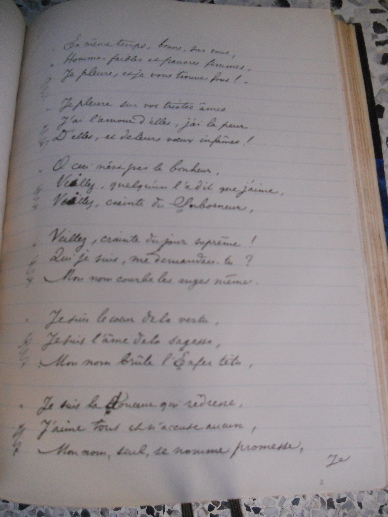 En même temps, bons, sur vous,
Hommes faibles et pauvres femmes,
Je pleure, et je vous trouve fous !
Je pleure sur vos tristes âmes
J'ai l'amour d'elles, j'ai la peur
D'elles, et de leurs vœux infâmes !
O ceci n'est pas le bonheur,
Veillez, quelqu'un l'a dit que j'aime,
Veillez, crainte du Suborneur,
Veillez, crainte du jour suprême !
Qui je suis, me demandais-tu ?
Mon nom courbe les anges même.
Je suis le cœur de la vertu,
Je suis l'âme de la sagesse,
Mon nom brûle l'Enfer têtu,
Je suis la douceur qui redresse,
J'aime tout et n'accuse aucun,
Mon nom, seul, se nomme promesse,
Je